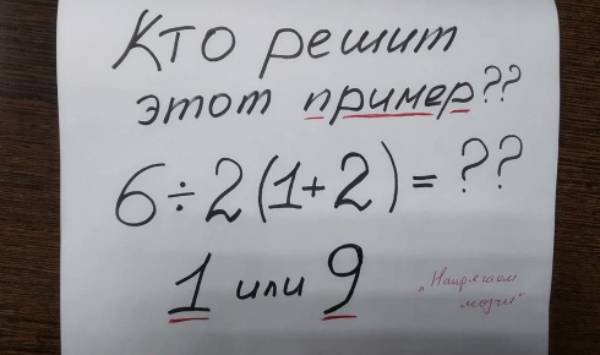 Кто решит
этот пример??
6÷2(1+2)=??
1 или 9
„Напрягаем
мозги"